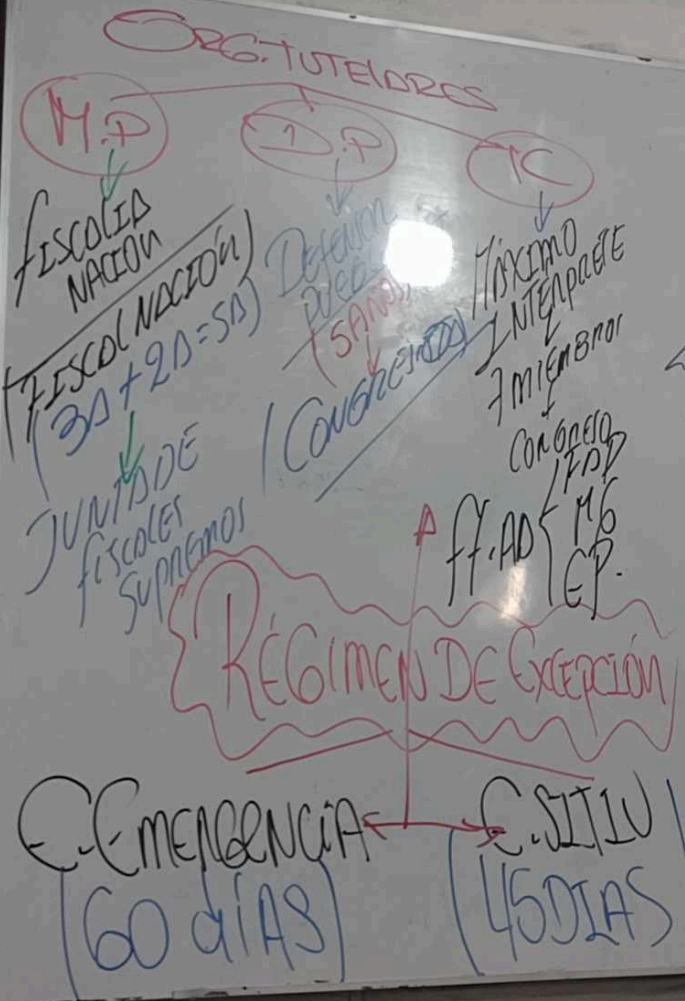 ORG. TUTELARES
M.P
D.P
TC
FISCALIA
NACIÓN
(FISCAL NACIÓN)
(3A + 2A = 5A)
JUNTA DE
FISCALES
SUPREMOS
DEFENSOR
PUEBLO
(5AÑOS)
(CONGRESISTA)
MÁXIMO
INTERPRETE
7 MIEMBROS
CONGRESO
FF.AD
FAP
MG
EP.
RÉGIMEN DE EXCEPCIÓN
E. EMERGENCIA
(60 dÍAS)
E. SITIO
(45 DIAS